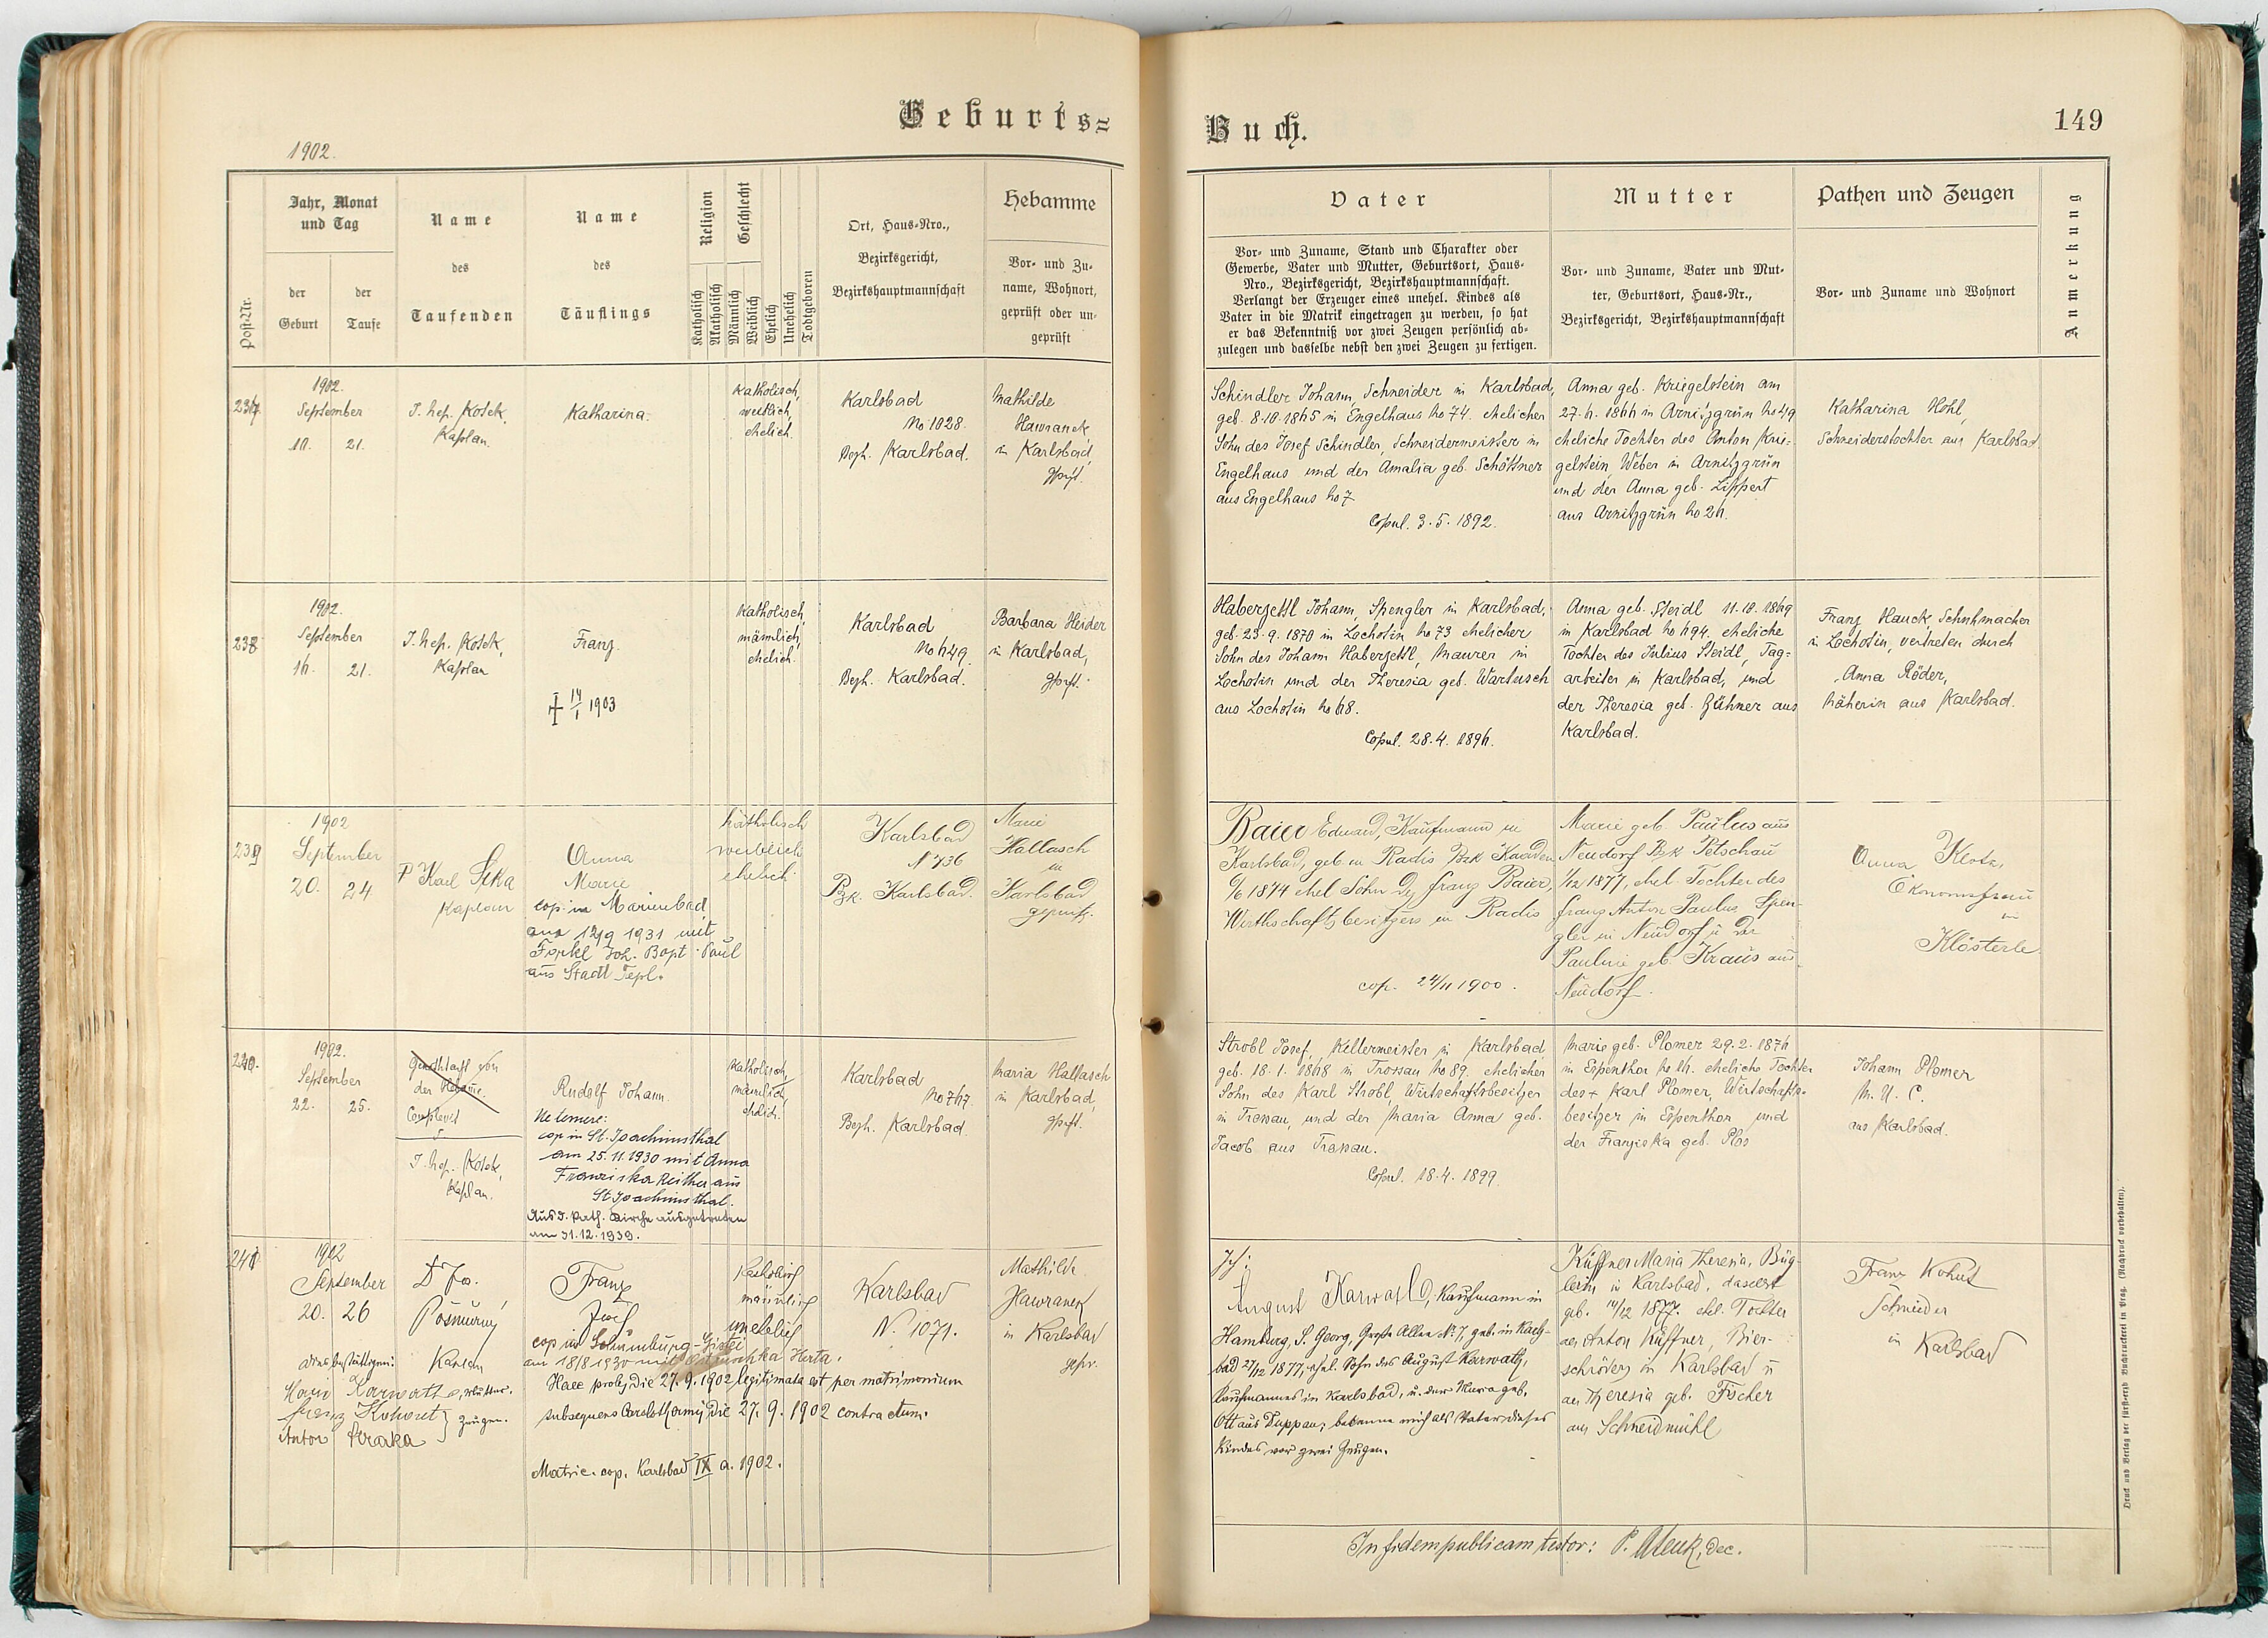 Geburts=
1902.
Post-Nr.
Jahr, Monat
und Tag
der
Geburt
der
Taufe
Name
des
Taufenden
Name
des
Täuflings
Religion
Katholisch
Akatholisch
Geschlecht
Männlich
Weiblich
Ehelich
Unehelich
Todtgeboren
Ort, Haus-Nro.,
Bezirksgericht,
Bezirkshauptmannschaft
Hebamme
Vor- und Zu-
name, Wohnort,
geprüft oder un-
geprüft
237.
1902.
September
10. 21.
J. Nep. Kosek,
Kaplan.
Katharina.
Katholisch,
weiblich,
ehelich.
Karlsbad
No 1028.
Bezh. Karlsbad.
Mathilde
Hawranek
in Karlsbad,
gepft.
238
1902.
September
16. 21.
J. Nep. Kosek,
Kaplan
Franz.
† 14/1 1903
Katholisch,
männlich,
ehelich.
Karlsbad
No 649.
Bezh. Karlsbad.
Barbara Heider
in Karlsbad,
gepft.
239
1902
September
20. 24
P Karl Sika
Kaplan
Anna
Marie
cop. in Marienbad
am 12/9 1931 mit
Forkl Joh. Bapt. Paul
aus Stadt Tepl.
katholisch
weiblich
ehelich.
Karlsbad
N 736
Bzk. Karlsbad.
Marie
Hallasch
in
Karlsbad
geprüft.
240.
1902.
September
22. 25.
der Hebamme.
J. Nep. Kosek,
Kaplan.
Rudolf Johann.
Ne temere:
cop in St. Joachimsthal
am 25.11.1930 mit Anna
Franziska Reither aus
St Joachimsthal.
Aus d. kath. Kirche ausgetreten
am 31.12.1939.
Katholisch,
männlich,
ehelich.
Karlsbad
No 767.
Bezh. Karlsbad.
Maria Hallasch
in Karlsbad,
gepft.
241
1902
September
20. 26
Kaplan
Marie Karwath, Mutter.
Franz Kohout } Zeugen.
Anton Straka
Franz
Josef
cop in
am 18/8 1930 mit Herta.
Haec proles die 27.9.1902 legitimata est per matrimonium
subsequens Carolothermis die 27. 9. 1902 contractum.
Matric. cop. Karlsbad IX a. 1902.
Katholisch
männlich
unehelich
Karlsbad
N. 1071.
Mathilde
Hawranek
in Karlsbad
gepr.
Buch.
149
Vater
Vor- und Zuname, Stand und Charakter oder
Gewerbe, Vater und Mutter, Geburtsort, Haus-
Nro., Bezirksgericht, Bezirkshauptmannschaft.
Verlangt der Erzeuger eines unehel. Kindes als
Vater in die Matrik eingetragen zu werden, so hat
er das Bekenntniß vor zwei Zeugen persönlich ab-
zulegen und dasselbe nebst den zwei Zeugen zu fertigen.
Mutter
Vor- und Zuname, Vater und Mut-
ter, Geburtsort, Haus-Nr.,
Bezirksgericht, Bezirkshauptmannschaft
Pathen und Zeugen
Vor- und Zuname und Wohnort
Anmerkung
Schindler Johann, Schneider in Karlsbad,
geb. 8.10.1865 in Engelhaus No 74. ehelicher
Sohn des Josef Schindler, Schneidermeister in
Engelhaus und der Amalia geb. Schöttner
aus Engelhaus No 7
Copul. 3. 5. 1892.
Anna geb. Kriegelstein am
27. 6. 1866 in Arnitzgrün No 49
eheliche Tochter des Anton Krie-
gelstein, Weber in Arnitzgrün
und der Anna geb. Lippert
aus Arnitzgrün No 26.
Katharina Hohl,
Schneiderstochter aus Karlsbad.
Haberzettl Johann, Spengler in Karlsbad,
geb. 23. 9. 1870 in Lochotin No 73 ehelicher
Sohn des Johann Haberzettl, Maurer in
Lochotin und der Theresia geb. Wartusch
aus Lochotin No 68.
Copul. 28. 4. 1896.
Anna geb. Steidl 11. 10. 1869
in Karlsbad No 694. eheliche
Tochter des Julius Steidl, Tag-
arbeiter in Karlsbad, und
der Theresia geb. Hühner aus
Karlsbad.
Franz Hauck, Schuhmacher
in Lochotin, vertreten durch
Anna Röder,
Näherin aus Karlsbad.
Baier Eduard, Kaufmann in
Karlsbad, geb. in Radis Bzk Kaaden
6/6 1874 ehel Sohn des Franz Baier,
Wirthschaftsbesitzers in Radis
cop. 24/11 1900.
Marie geb. Paulus aus
Neudorf Bzk Petschau
1/12 1877, ehel. Tochter des
Franz Anton Paulus Spen-
gler in Neudorf u der
Pauline geb. Kraus aus
Neudorf.
Anna Klotz,
Ökonomsfrau
in
Klösterle
Strobl Josef, Kellermeister in Karlsbad
geb. 18. 1. 1868 in Trossau No 89. ehelicher
Sohn des Karl Strobl, Wirtschaftsbesitzer
in Trossau, und der Maria Anna geb.
Jacob aus Trossau.
Copul. 18. 4. 1899.
Marie geb. Plomer 29. 2. 1876
in Espenthor No 16. eheliche Tochter
des † Karl Plomer, Wirtschafts-
besitzer in Espenthor und
der Franziska geb. Plos
Johann Plomer
M. U. C.
aus Karlsbad.
Ich:
August Karwath, Kaufmann in
Hamburg, S. Georg, Große Allee No 7, geb. in Karls-
bad 27/12 1877, ehel. Sohn des August Karwath,
Kaufmannes in Karlsbad, u. der Maria geb.
Ott aus Duppau, bekenne mich als Vater dieses
Kindes vor zwei Zeugen.
Küffner Maria Theresia, Büg-
lerin in Karlsbad, daselbst
geb. 14/12 1877. ehel. Tochter
des Anton Küffner, Bier-
schröters in Karlsbad u
der Theresia geb. Fischer
aus Schneidmühl
Franz Kohut
Schneider
in Karlsbad
In fidem publicam testor: P. dec.
Druck und Verlag der fürsterzb. Buchdruckerei in Prag. (Nachdruck vorbehalten).